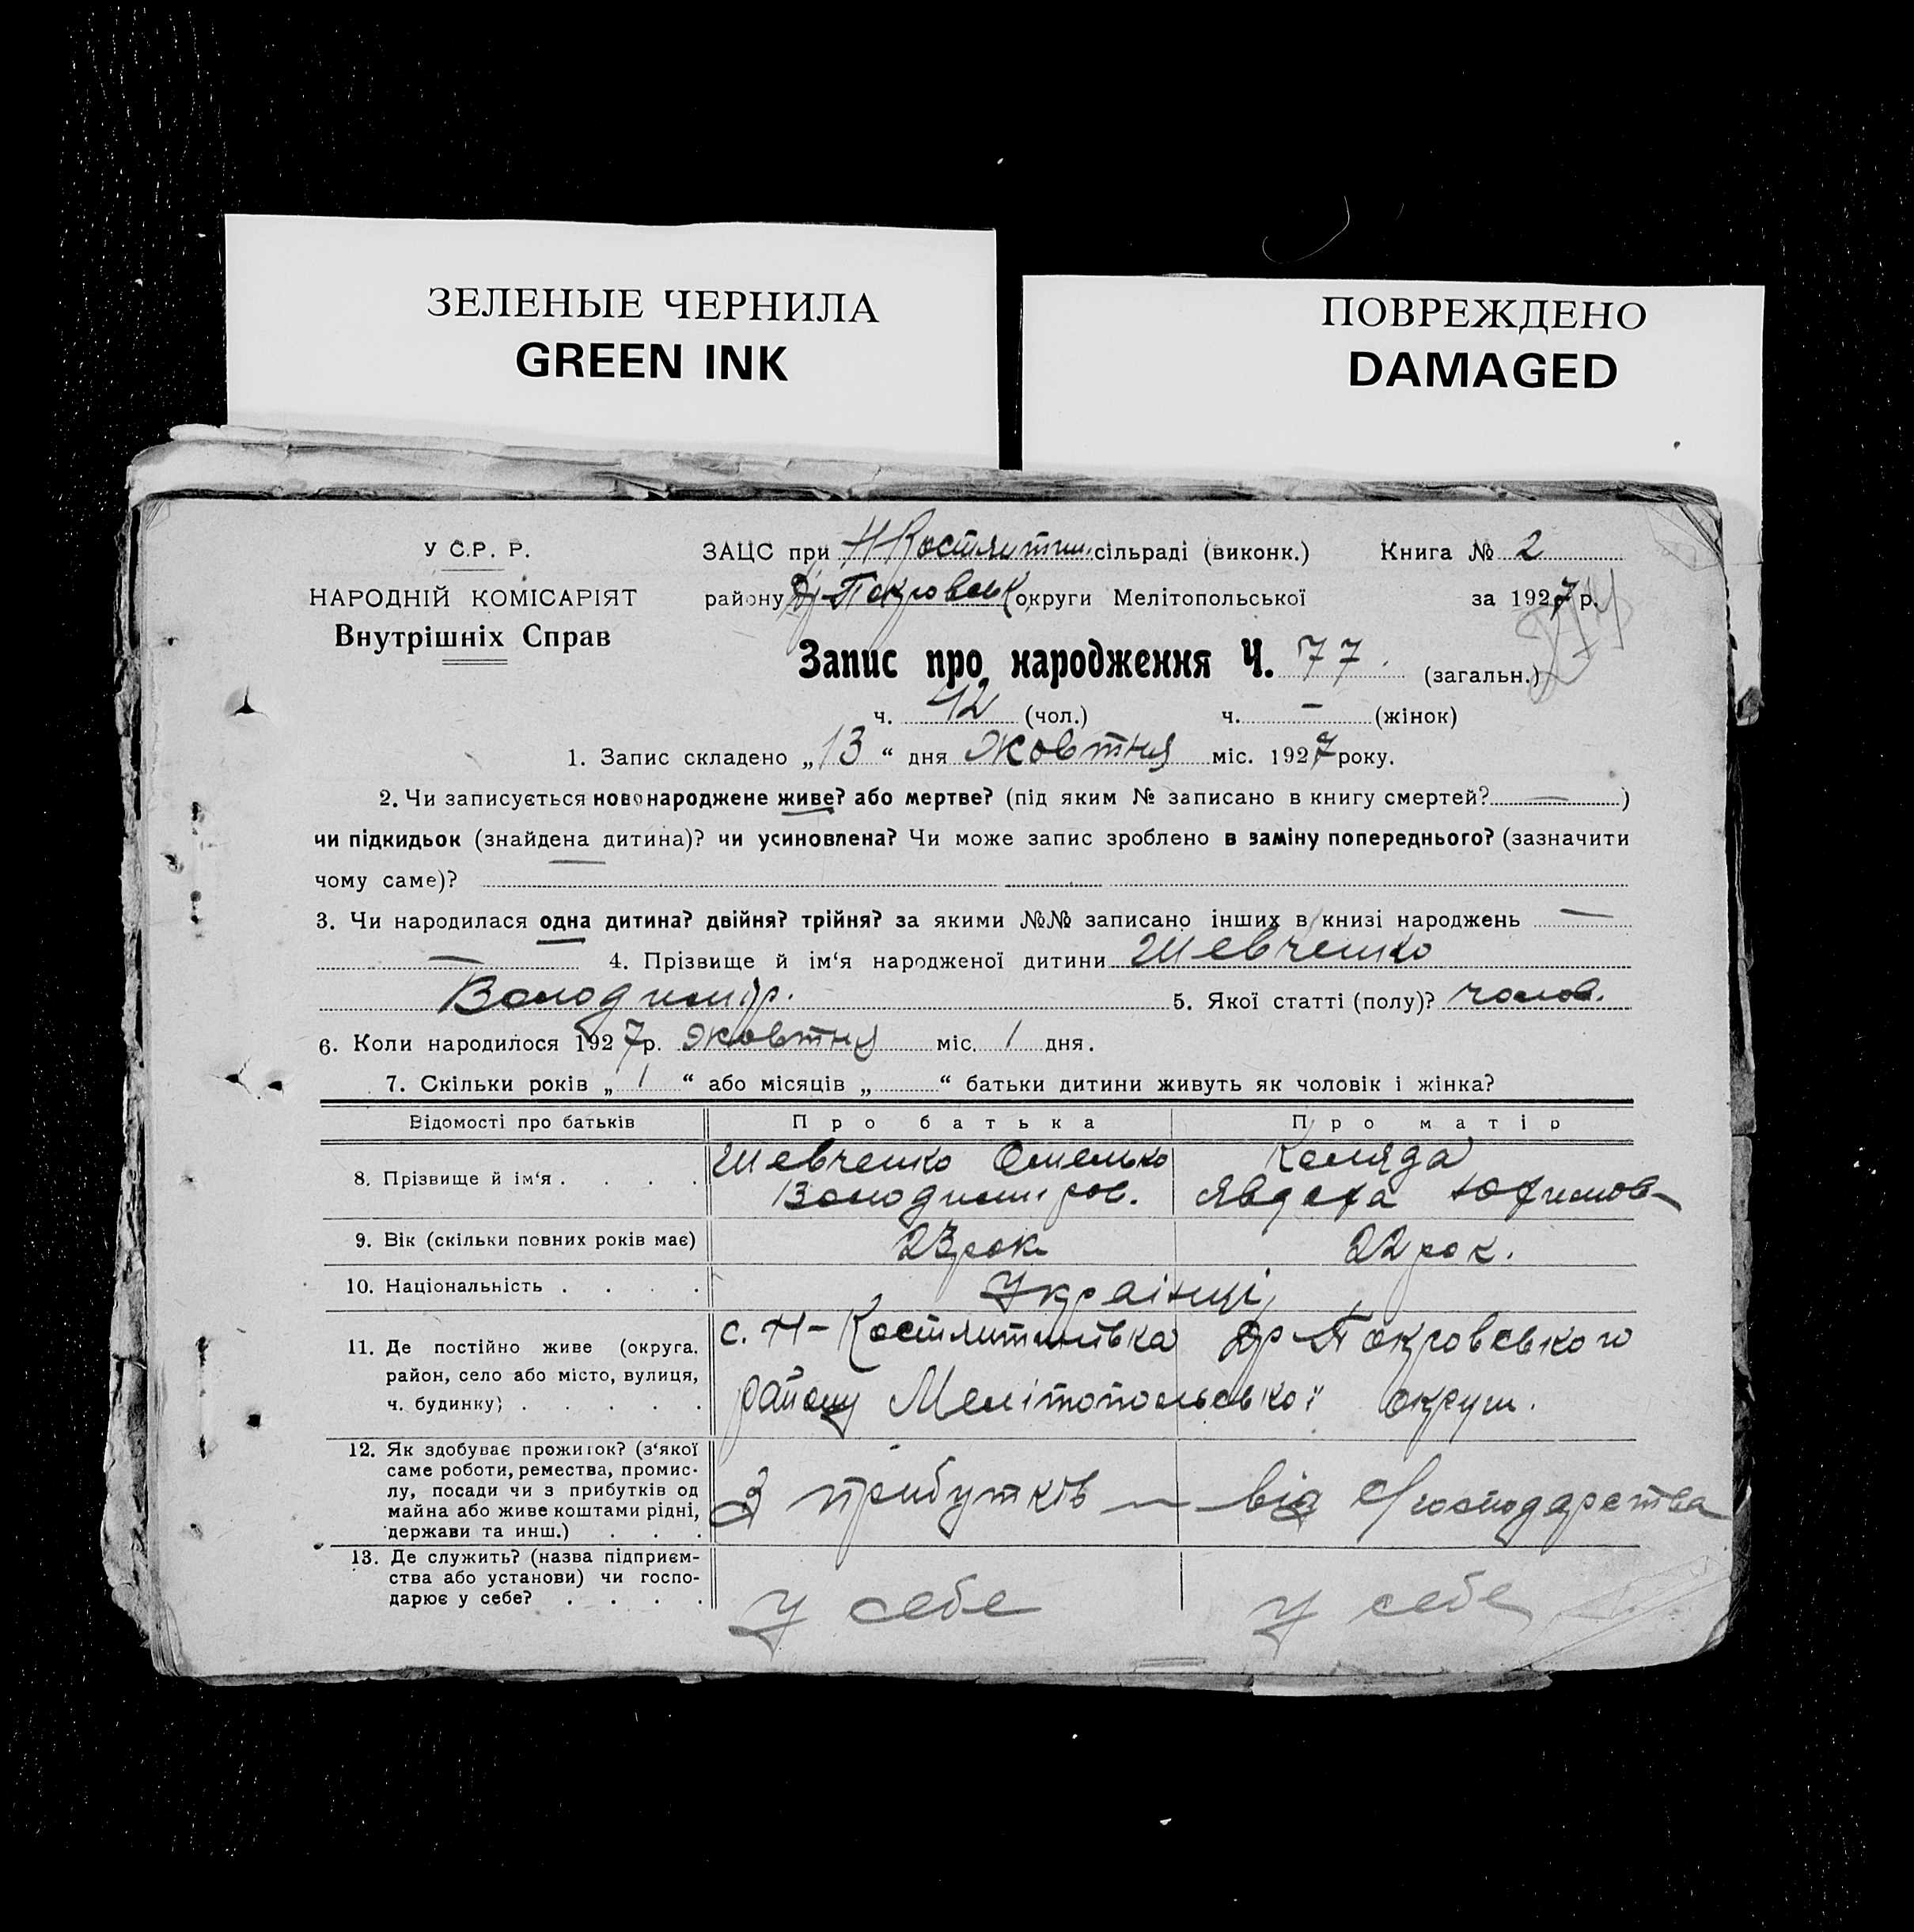 ЗЕЛЕНЫЕ ЧЕРНИЛА
GREEN INK
ПОВРЕЖДЕНО
DAMAGED
У С.Р. Р.
НАРОДНІЙ КОМІСАРІЯТ
Внутрішніх Справ
ЗАЦС при сільраді (виконк.) Книга № 2
району Покровськ округи Мелітопольської за 1927 р.
Запис про народження Ч. 77 (загальн.)
ч. 42 (чол.) ч. – (жінок)
1. Запис складено „13“ дня Жовтня міс. 1927 року.
2. Чи записується новонароджене живе? або мертве? (під яким № записано в книгу смертей? — )
чи підкидьок (знайдена дитина)? чи усиновлена? Чи може запис зроблено в заміну попереднього? (зазначити
чому саме)?
3. Чи народилася одна дитина? двійня? трійня? за якими №№ записано інших в книзі народжень —
— 4. Прізвище й ім‘я народженої дитини Шевченко
Володимір. 5. Якої статті (полу)? чолов.
6. Коли народилося 1927 р. Жовтня міс. 1 дня.
7. Скільки років „ 1 “ або місяців „ “ батьки дитини живуть як чоловік і жінка?
Відомості про батьків Про батька Про матір
8. Прізвище й ім‘я . . . . Шевченко Омелько Коляда
Володимиров. Явдоха Юхимов
9. Вік (скільки повних років має) 23 рок 22 рок.
10. Національність . . . . Українці
11. Де постійно живе (округа, с. Н-Костянтинівка Покровського
район, село або місто, вулиця,
ч. будинку) . . . . . району Мелітопольської округи.
12. Як здобуває прожиток? (з‘якої
саме роботи, ремества, промис-
лу, посади чи з прибутків од З прибутків — від господарства
майна або живе коштами рідні,
держави та инш.) . . .
13. Де служить? (назва підприєм-
ства або установи) чи госпо-
дарює у себе? . . . . у себе у себе